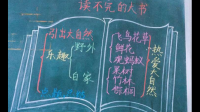 读不完的大书
引出大自然
乐趣
野外
自家
飞鸟花街
鲜花
观蚂蚁
果树
竹林
梧桐
热爱大自然